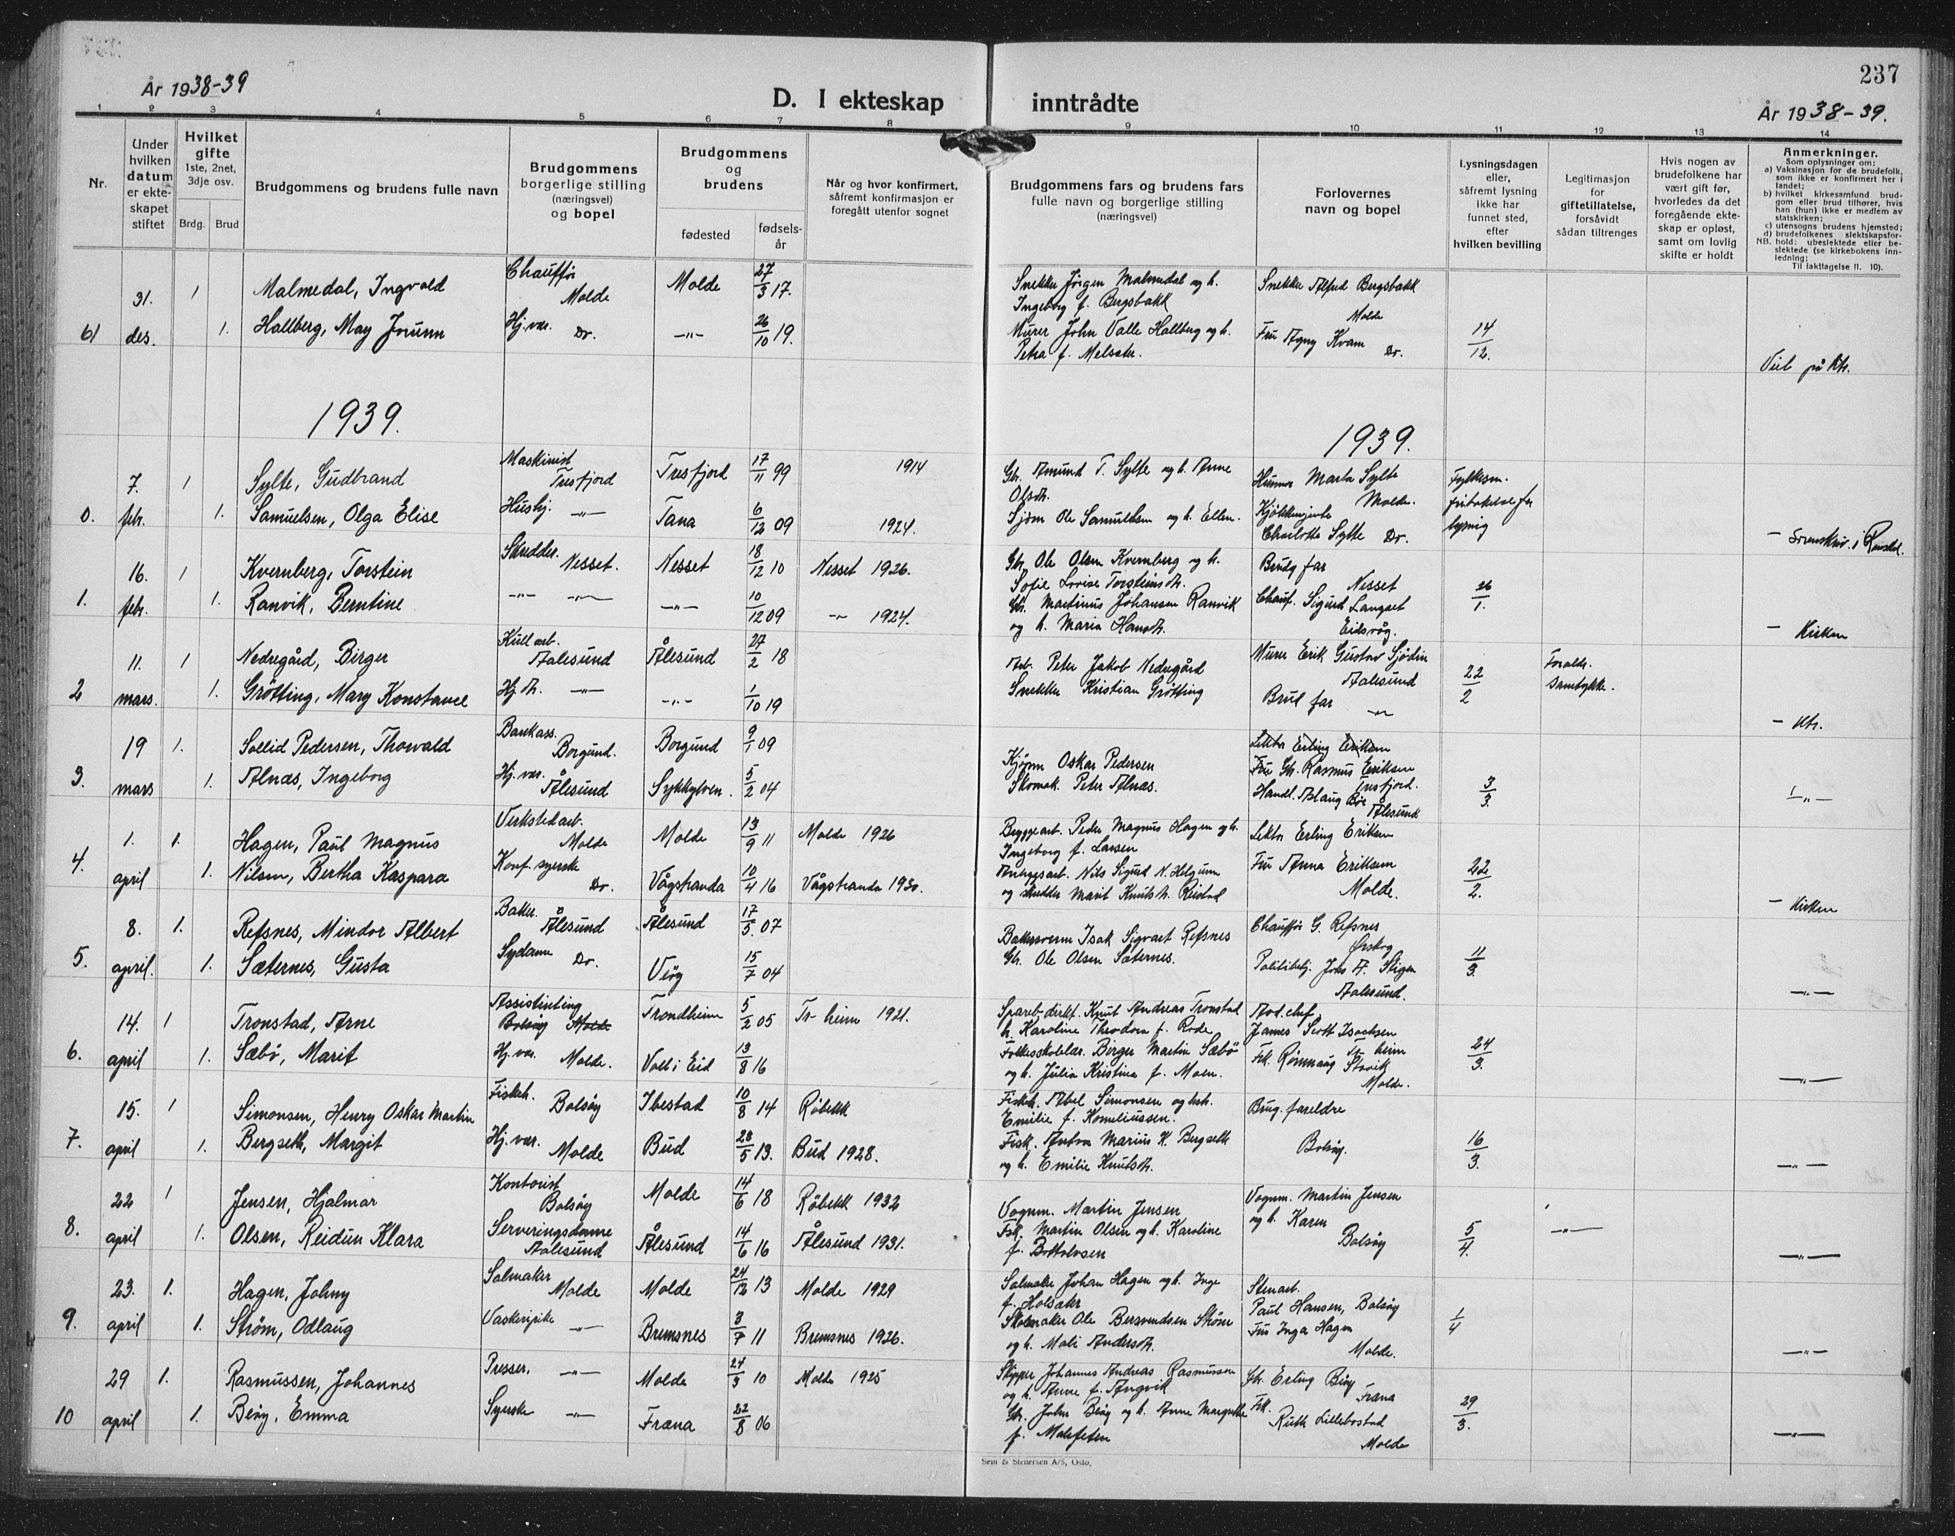 237
År 1938-39
D. I ekteskap inntrådte
År 1938-39.
1 2 3 4 5 6 7 8 9 10 11 12 13 14
Nr.
Under hvilken datum er ekteskapet stiftet
Hvilket gifte
1ste, 2net, 3dje osv.
Brdg. Brud
Brudgommens og brudens fulle navn
Brudgommens borgerlige stilling (næringsvei) og bopel
Brudgommens og brudens
fødested
fødselsår
Når og hvor konfirmert, såfremt konfirmasjon er foregått utenfor sognet
Brudgommens fars og brudens fars fulle navn og borgerlige stilling (næringsvei)
Forlovernes navn og bopel
Lysningsdagen eller, såfremt lysning ikke har funnet sted, efter hvilken bevilling
Legitimasjon for giftetillatelse, forsåvidt sådan tiltrenges
Hvis nogen av brudefolkene har vært gift før, hvorledes da det foregående ekteskap er opløst, samt om lovlig skifte er holdt
Anmerkninger.
Som oplysninger om:
a) Vaksinasjon for de brudefolk, som ikke er konfirmert her i landet;
b) hvilket kirkesamfund brudgom eller brud tilhører, hvis han (hun) ikke er medlem av statskirken;
c) utensogns brudens hjemsted;
d) brudefolkenes slektskapsforhold: ubeslektede eller beslektede (se kirkebokens innledning;
NB. Til iakttagelse II. 10).
31. 1 Malmedal, Ingvald Chauffør Molde Molde 27/3 17. Snekke Jörgen Malmedal og h. Ingeborg f. Bergsbakk Snekke Alfred Bergsbakk Molde
61 des. 1. Hallberg, May Jorunn Hj.vær. Do. —"— 26/10 19. Murer John Valle Hallberg og h. Petra f. Melsæter. Fru Agny Kvam Do. 14/12. Viet på ktr.
1939. 1939.
7. 1 Sylte, Gudbrand Maskinist Tresfjord Tresfjord 17/11 99 1914 Gbr. Amund T. Sylte og h. Anne Olsdtr. Marta Sylte Molde.
0. febr. 1. Samuelsen, Olga Elise Husbj. —"— Tana 6/12 09 1924. Ole Samuelsen og h. Ellen. Charlotte Sylte Do.
16. 1 Kvernberg, Torstein Skredder. Nesset. Nesset 18/12 10 Nesset 1926. Gbr. Ole Olsen Kvernberg og h. Sofie Lovise Torsteinsdtr. Brudg far Nesset
1. febr. 1. Ranvik, Berntine —"— —"— —"— 10/12 09 —"— 1924. Gbr. Martinus Johansen Ranvik og h. Maria Hansdtr. Chauf. Sigurd Langset Eidsvåg. 26/1. — Kirken
11. 1 Nedregård, Birger Kullarb. Aalesund Ålesund 27/2 18 Arb. Peter Jakob Nedregård Murer Erik Gustav Sjödin Aalesund
2 mars. 1. Grötting, Mary Konstance Hj.dtr. —"— —"— 1/10 19 Snekker Kristian Grötting Brud far —"— 22/2 Foreldr. samtykke. — ktr.
19 1. Sollid Pedersen, Thorvald Bankass. Borgund. Borgund 9/1 09 Oskar Pedersen Lektor Erling Eriksen Gbr. Rasmus Eriksen Tresfjord.
3. mars 1. Alnæs, Ingeborg Hj.vær. Ålesund Sykkylven. 5/2 04 Skomak. Peter Alnæs. Handl. Aslaug Bøe Ålesund 3/3. —"—
1. 1. Hagen, Paul Magnus Verkstedarb. Molde Molde 13/9 11 Molde 1926 Bryggearb. Peder Magnus Hagen og h. Ingeborg f. Larsen Lektor Erling Eriksen
4. april 1. Nilsen, Bertha Kaspara Konf. syerske Do. Vågstranda 10/4 16 Vågstranda 1930. Anleggsarb. Nils Sigurd N. Helgum og Marit Knutsdtr. Reistad Fru Anna Eriksen Molde. 22/2. — Kirken
8. 1. Refsnes, Mindor Albert Baker. Ålesund Ålesund 17/5. 07 Bakersvenn Isak Sigvart Refsnes Chauffør G. Refsnes Ørskog
5. april. 1. Sæternes, Gusta Sydame Do. Veøy 15/7 04 Gbr. Ole Olsen Sæternes. Politibetj. Johs A. Stigen Aalesund. 11/3. —"—
14. 1 Tronstad, Arne Assistenting Bolsøy Molde Trondheim 5/2 05 Tr heim 1921. Spareb.dirkt. Knut Andreas Tronstad h. Karoline Theodora f. Rode Avd.chef James Scott Isachsen Tr heim
6. april 1. Sæbö, Marit Hj.vær. Molde. Voll i Eid 13/8 16 Folkeskolelær. Birger Martin Sæbö og h. Julia Kristina f. Moen. Frk. Rønnaug Slovik Molde. 24/3. —"—
15. 1 Simonsen, Henry Oskar Martin Fiskeh. Bolsöy Ibestad 10/8 14 Røbekk Fiskeh. Abel Simonsen og h. Emilie f. Korneliussen. Brug. foreldre
7. april 1. Bergseth, Margit Hj.vær. Molde Bud 28/5 13. Bud 1928. Fisk. Anton Marius K. Bergseth og h. Emilie Knutsdtr. Bolsøy. 16/3. —"—
22 1 Jensen, Hjalmar Kontorist Bolsøy Molde 14/6 18 Røbekk 1932 Vognm. Martin Jensen Vognm. Martin Jensen og h. Karen
8. april 1. Olsen, Reidun Klara Serveringsdame Aalesund Ålesund 14/6 16 Ålesund 1931. Fsk. Martin Olsen og h. Karoline f. Bottolvsen Bolsøy 5/4. —"— —"—
23. 1. Hagen, Johny Salmaker Molde Molde 24/12 13 Molde 1929 Salmaker Johan Hagen og h. Inge f. Holsæter Stenarb. Paul Hansen, Bolsøy
9. april 1. Ström, Odlaug Vaskeripike —"— Bremsnes 3/7 11 Bremsnes 1926. Skomaker Ole Bersvendsen Ström og h. Mali Andersdtr. Fru Inga Hagen Molde. 1/4 —"—
29 1. Rasmussen, Johannes Presser. —"— Molde 24/3 10 Molde 1925 Skipper Johannes Andreas Rasmussen og h. Anne f. Angvik Gbr. Erling Bøy Fræna
10 april 1. Bøy, Emma Syerske —"— Fræna 22/8 06 Gbr. John Bøy og h. Anne Margrethe f. Malefeten Frk. Ruth Lillebostad Molde 29/3. —"—
Sem & Stenersen A/S, Oslo.